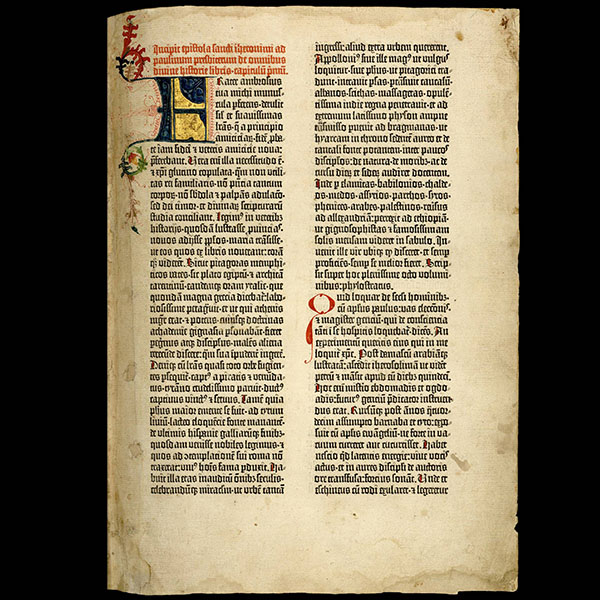 Incipit epistola sancti iheronimi ad
paulinum presbiterum de omnibus
divine historie libris · capitulũ primũ.
Frater ambrosius
tua michi munus-
cula pferens · detulit
sił et suavissimas
lrãs · q̃ a principio
amiciciaȝ · fidẽ pba-
te iam fidei ⁊ veteris amicicie nova
pferebant. Vera enĩ illa necessitudo ẽ ·
⁊ xpĩ glutino copulata · qm̃ non utili-
tas rei familiaris · nõ pñtia tantum
corpoȝ · nõ sbdola ⁊ palpãs adulacõ ·
sed dei timor · et divinaȝ scripturarũ
studia conciliant. Legim⁹ in veteribȝ
historijs · quosdã lustrasse, puincias ·
novos adijsse ppłos · maria trãsisse ·
ut eos quos ex libris noverant: corã
q̃ȝ viderẽt. Sicut pitagoras memphi-
ticos vates · sic plato egiptũ · ⁊ architã
tarentinũ · eandemq̃ȝ oram ytalie · que
quondã magna grecia dicebaẗ: labo-
riosissime peragravit · et ut qui athenis
mgr̃ erat · ⁊ potens · cuiusq̃ȝ doctrinas
achademie gignasia psonabãt · fieret
peginus atq̃ȝ discipulus · malẽs aliena
verecunde discere: q̃m sua ĩpudent̃ ingerẽ.
Deniq̃ȝ cũ lrãs quasi toto orbe fugien-
tes psequit̃ · capt⁹ a piratis ⁊ venũda-
tus · tyranno crudelissimo paruit · duct⁹
captivus vinct⁹ ⁊ servus. Tamẽ quia
phus maior emente se fuit · ad tytum
livium · lacteo eloquẽtie fonte manantẽ ·
de ultimis hispanie galliarũq̃ȝ finibȝ ·
quosdam venisse nobiles legimus ·
⁊ quos ad cõtemplacõnẽ sui roma nõ
traxerat: uni⁹ hoĩs fama pduxit. Ha-
buit illa etas inauditũ õnibȝ seculis ·
celebrandũq̃ȝ miraclm̃ · ut urbẽ tantã
ingressi: aliud extra urbem quererent.
Appolloni⁹ sive ille mag⁹ ut vulgus
loquitur · sive phus · ut pitagorici tra-
dunt · intravit psas · ptransivit caucasũ ·
albanos · scithas · massagetas · opulẽ-
tissima indie regna penetravit · et ad
extremum latissimo physon ampne
trãsmisso puenit ad bragmanas · ut
hyarcam in throno sedentẽ aureo · et de
tantali fonte potantem · inter paucos
discipulos · de natura · de moribȝ · ac de
cursu dieȝ ⁊ sideȝ audiret docentem.
Inde p elamitas · babilonios · chalde-
os · medos · assyrios · parthos · syros ·
phenices · arabes · palestinos · reversus
ad allexandriã: perrexit ad ethiopiã ·
ut gignosophistas ⁊ famosissimam
solis mensam videret in sabulo. In-
venit ille vir ubiq̃ȝ q̃ disceret · et semp
proficiẽs · semp se melior fieret. Scrip-
sit super hoc plenissime octo volumi-
nibus: phylostratus.
Quid loquar de secli hominibȝ ·
cũ apłus paulus: vas elecconis ·
⁊ magister genciũ · qui de consciencia
tãti ĩ se hospitis loquebaẗ · dicẽs. An
experimentum queritis eius qui in me
loquiẗ xp̃c. Post damascũ arabiãq̃ȝ
lustratã: ascendit iherosolimã ut videret
petrũ ⁊ mãsit apud eũ diebȝ quindeci.
Hoc enĩ misterio ebdomadis et ogdo-
adis: futur⁹ genciũ p̃dicator instruen-
dus erat. Rursũq̃ȝ post ãnos q̃tuor-
decim assumpto barnaba et tyto · expo-
suit cũ apłis evangeliũ: ne forte in va-
cuum curreret aut cucurrisset. Habet
nescio q̃d latentis energie · vive vocis
actus · et in aures discipłi de auctoris
ore transfusa: forcius sonat. Unde et
eschineus cũ rodi exularet · ⁊ legeretur